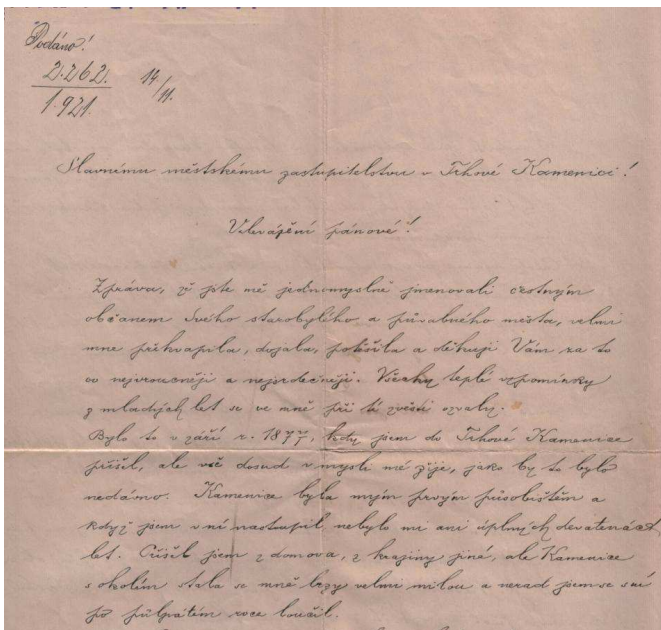 Podáno!
2.262.
1.921.
14/11.
Slavnému městskému zastupitelstvu v Trhové Kamenici!
Velevážení pánové!
Zpráva, že jste mě jednomyslně jmenovali čestným
občanem Svého starobylého a půvabného města, velmi
mne překvapila, dojala, potěšila a děkuji Vám za to
co nejvroucněji a nejsrdečněji. Všechny teplé vzpomínky
z mladých let se ve mně při té zvěsti ozvaly.
Bylo to v září r. 1877, kdy jsem do Trhové Kamenice
přišel, ale vše dosud v mysli mé žije, jako by to bylo
nedávno. Kamenice byla mým prvým působištěm a
když jsem v ní nastoupil, nebylo mi ani úplných devatenáct
let. Přišel jsem z domova, z krajiny jiné, ale Kamenice
s okolím stala se mně brzy velmi milou a nerad jsem se s ní
po půlpátém roce loučil.